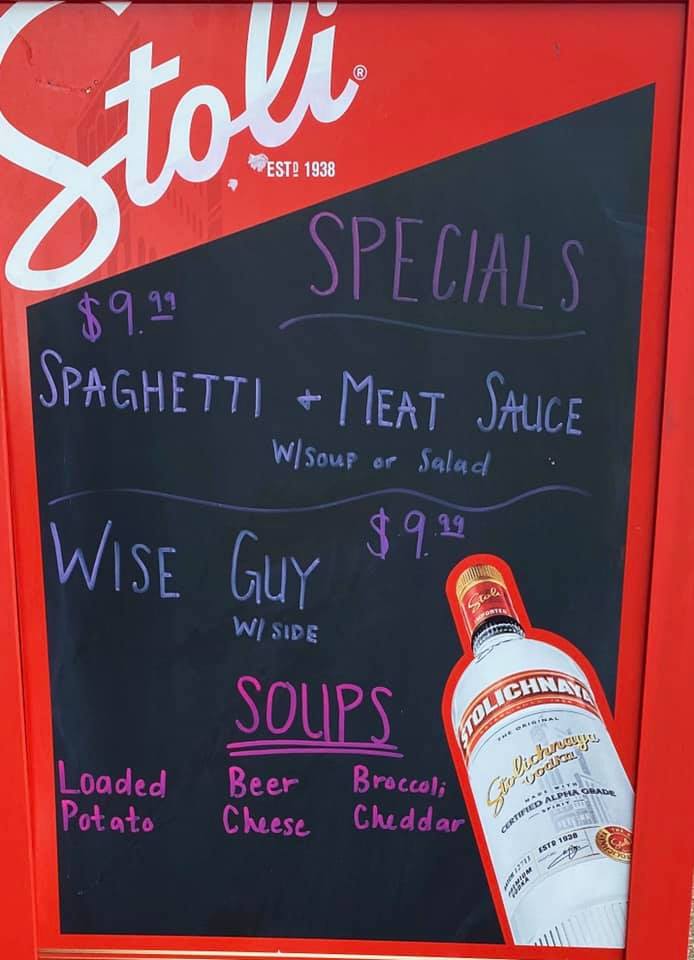 Stoli®
ESTD 1938
SPECIALS
$9.99
SPAGHETTI + MEAT SAUCE
W/SOUP or Salad
WISE GUY $9.99
W/ SIDE
SOUPS
Loaded Beer Broccoli
Potato Cheese Cheddar
Stoli
IMPORTED
STOLICHNAYA
THE ORIGINAL
Stolichnaya
vodka
MADE WITH
CERTIFIED ALPHA GRADE
SPIRIT
ESTD 1938
PREMIUM
VODKA